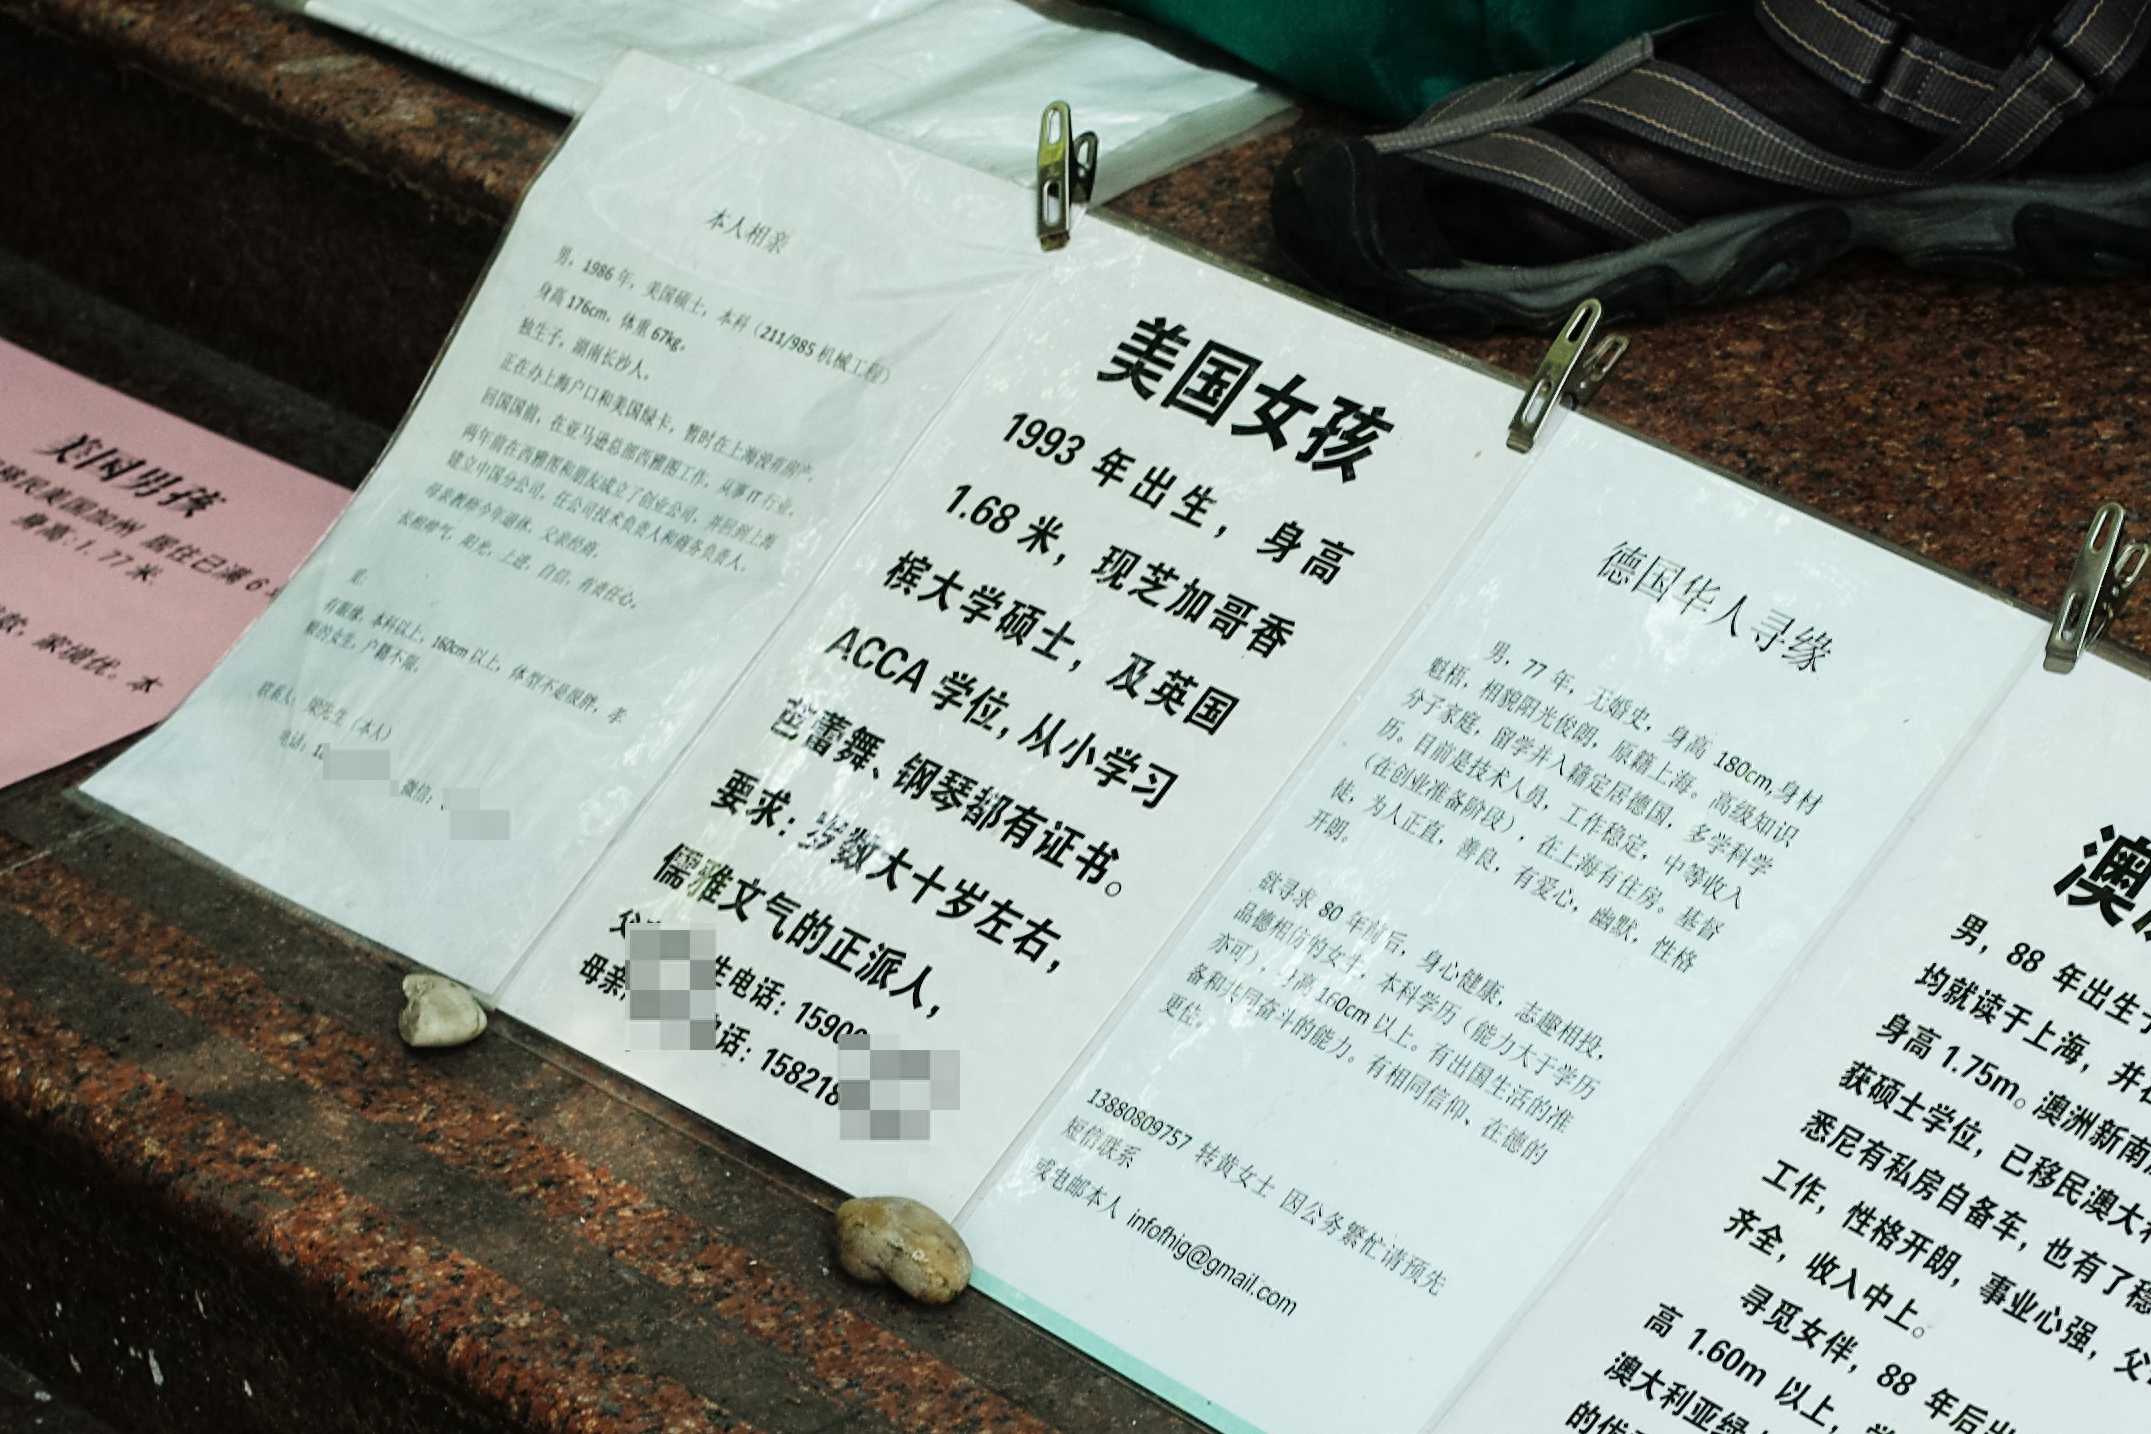 美国男孩
移民美国加州 居住已满6
身高:1.77米
家境优。本
本人相亲
男，1986年，美国硕士，本科（211/985机械工程）
身高176cm，体重67kg。
独生子，湖南长沙人。
正在办上海户口和美国绿卡，暂时在上海没有房产。
回国前，在亚马逊总部西雅图工作，从事IT行业。
两年前在西雅图和朋友成立了创业公司，并回到上海
建立中国分公司，任公司技术负责人和商务负责人。
母亲教师今年退休，父亲经商。
长相帅气，阳光，上进，自信，有责任心。
有眼缘，本科以上，160cm以上，体型不是很胖，孝
顺的女生，户籍不限。
联系人：（本人）
电话：
微信：
美国女孩
1993年出生，身高
1.68米，现芝加哥香
槟大学硕士，及英国
ACCA学位，从小学习
芭蕾舞、钢琴都有证书。
要求：岁数大十岁左右，
儒雅文气的正派人，
父 生电话：15900
母亲 电话：158218
德国华人寻缘
男，77年，无婚史，身高180cm，身材
魁梧，相貌阳光俊朗，原籍上海。高级知识
分子家庭，留学并入籍定居德国，多学科学
历。目前是技术人员，工作稳定，中等收入
（在创业准备阶段），在上海有住房。基督
徒，为人正直，善良，有爱心，幽默，性格
开朗。
欲寻求80年前后，身心健康，志趣相投，
品德相仿的女生，本科学历（能力大于学历
亦可），身高160cm以上。有出国生活的准
备和共同奋斗的能力。有相同信仰、在德的
更佳。
13880809757 转黄女士 因公务繁忙请预先
短信联系
或电邮本人 infofhig@gmail.com
澳
男，88年出生
均就读于上海，并
身高1.75m。澳洲新南
获硕士学位，已移民澳大
悉尼有私房自备车，也有了稳
工作，性格开朗，事业心强，父
齐全，收入中上。
寻觅女伴，88年后出
高1.60m以上，
澳大利亚绿
的传